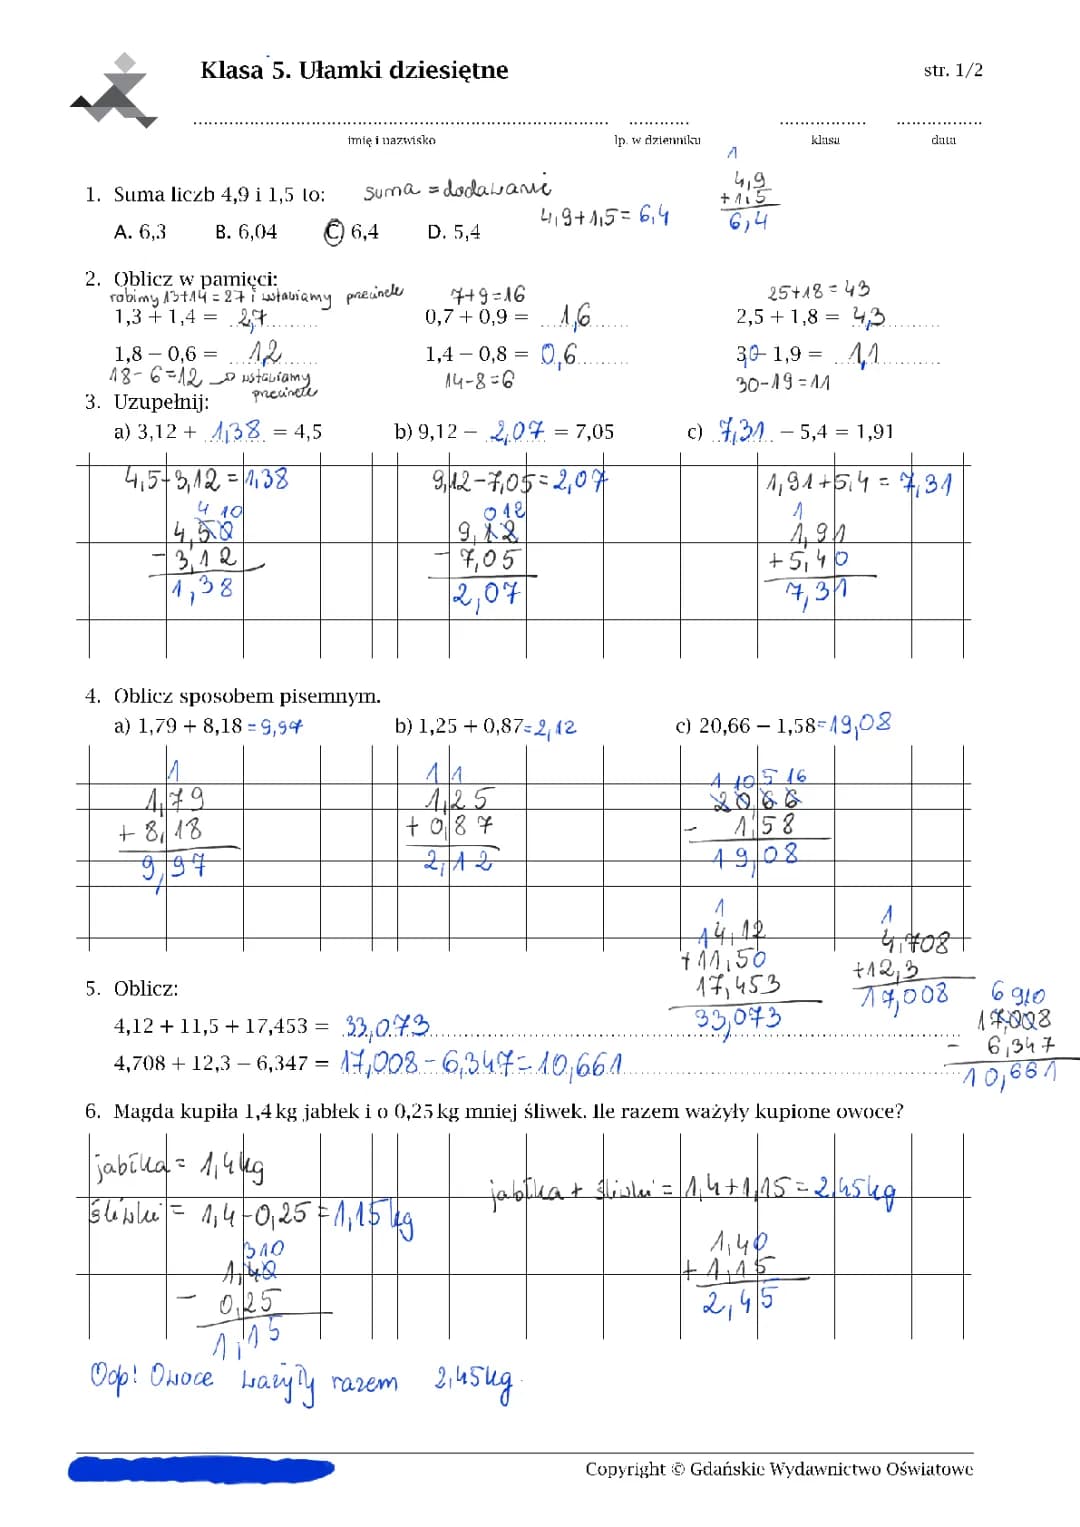 Klasa 5. Ułamki dziesiętne
str. 1/2
imię i nazwisko
lp. w dzienniku
klasa
data
1. Suma liczb 4,9 i 1,5 to:
suma = dodawanie
A. 6,3 B. 6,04 C. 6,4 D. 5,4
4,9+1,5=6,4
1
4,9
+1,5
6,4
2. Oblicz w pamięci:
robimy 13+14=27 i wstawiamy przecinek
7+9=16
25+18=43
1,3 + 1,4 = 2,7
0,7 + 0,9 = 1,6
2,5 + 1,8 = 4,3
1,8 − 0,6 = 1,2
1,4 − 0,8 = 0,6
3,0 − 1,9 = 1,1
18-6=12 → wstawiamy przecinek
14-8=6
30-19=11
3. Uzupełnij:
a) 3,12 + 1,38 = 4,5
b) 9,12 − 2,07 = 7,05
c) 7,31 − 5,4 = 1,91
4,5-3,12=1,38
9,12-7,05=2,07
1,91+5,4=7,31
4 10
4,50
-3,12
1,38
0 12
9,12
-7,05
2,07
1
1,91
+5,40
7,31
4. Oblicz sposobem pisemnym.
a) 1,79 + 8,18 = 9,97
b) 1,25 + 0,87 = 2,12
c) 20,66 − 1,58 = 19,08
1
1,79
+8,18
9,97
1 1
1,25
+0,87
2,12
1 10 5 16
20,66
-1,58
19,08
1
14,12
+11,50
17,453
33,073
1
4,708
+12,3
17,008
5. Oblicz:
4,12 + 11,5 + 17,453 = 33,073
4,708 + 12,3 − 6,347 = 17,008-6,347=10,661
6 9 10
17,008
-6,347
10,661
6. Magda kupiła 1,4 kg jabłek i o 0,25 kg mniej śliwek. Ile razem ważyły kupione owoce?
jabłka = 1,4kg
śliwki = 1,4-0,25=1,15kg
jabłka + śliwki = 1,4+1,15=2,45kg
3 10
1,40
-0,25
1,15
1,40
+1,15
2,45
Odp! Owoce ważyły razem 2,45kg.
Copyright © Gdańskie Wydawnictwo Oświatowe